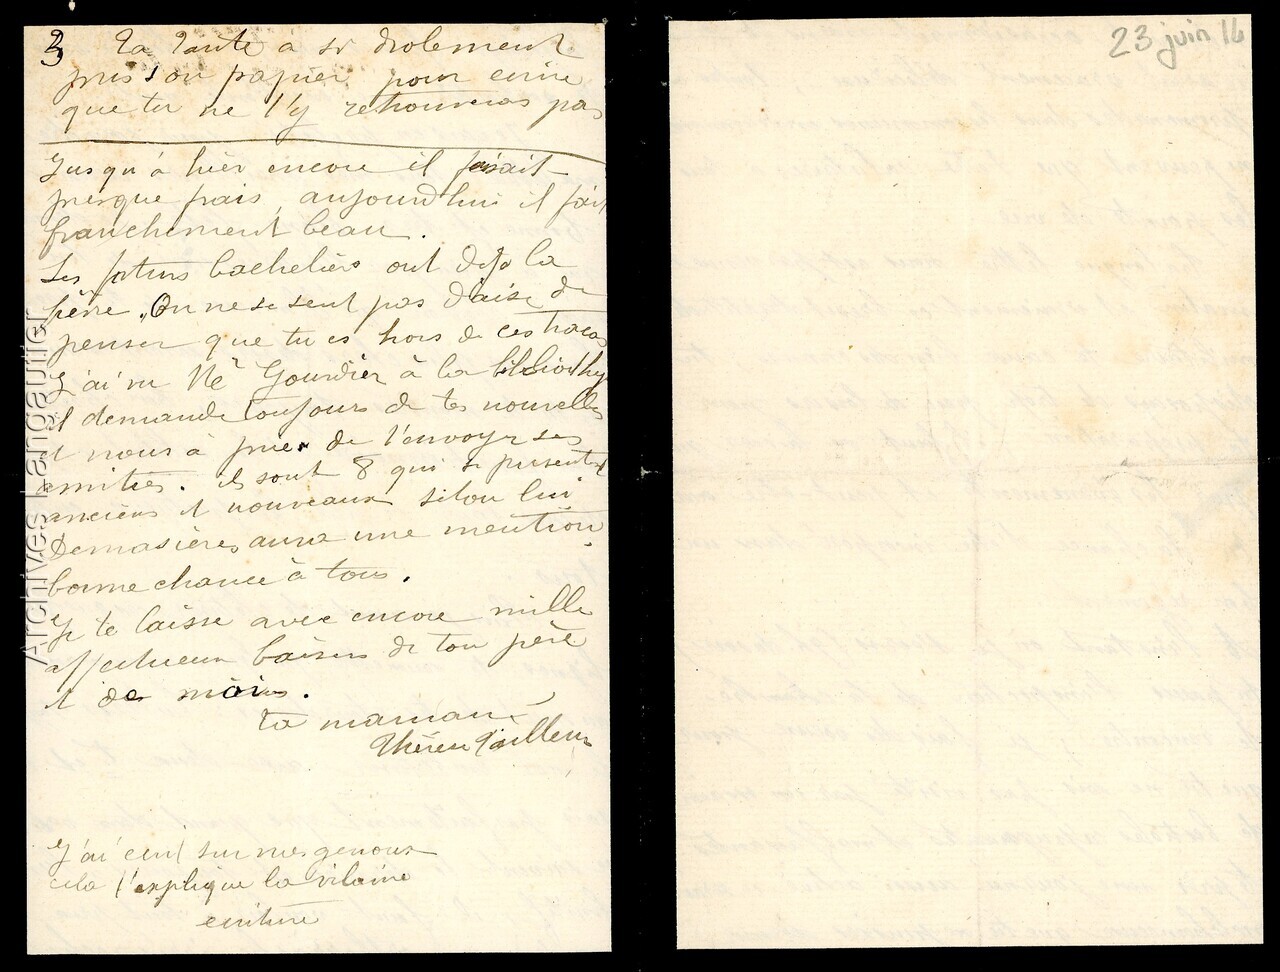 3 Ta tante a si drolement
pris son papier pour ecrire
que tu ne t'y retrouveras pas
Jusqu'à hier encore il faisait
presque frais, aujourd'hui il fait
franchement beau.
Les futurs bacheliers ont deja la
fièvre. On ne se sent pas d'aise de
penser que tu es hors de ces tracas
J'ai vu Mr Gourdier à la biblioth
il demande toujours de tes nouvelles
et nous a prier de t'envoyer ses
amitiés. ils sont 8 qui se presentent
anciens et nouveaux selon lui
Demasières aura une mention
bonne chance à tous.
Je te laisse avec encore mille
affectueux baisers de ton père
et de moi.
ta maman
Thérèse
J'ai ecrit sur mes genoux
cela t'explique la vilaine
ecriture
23 juin 16
Archives Langautier